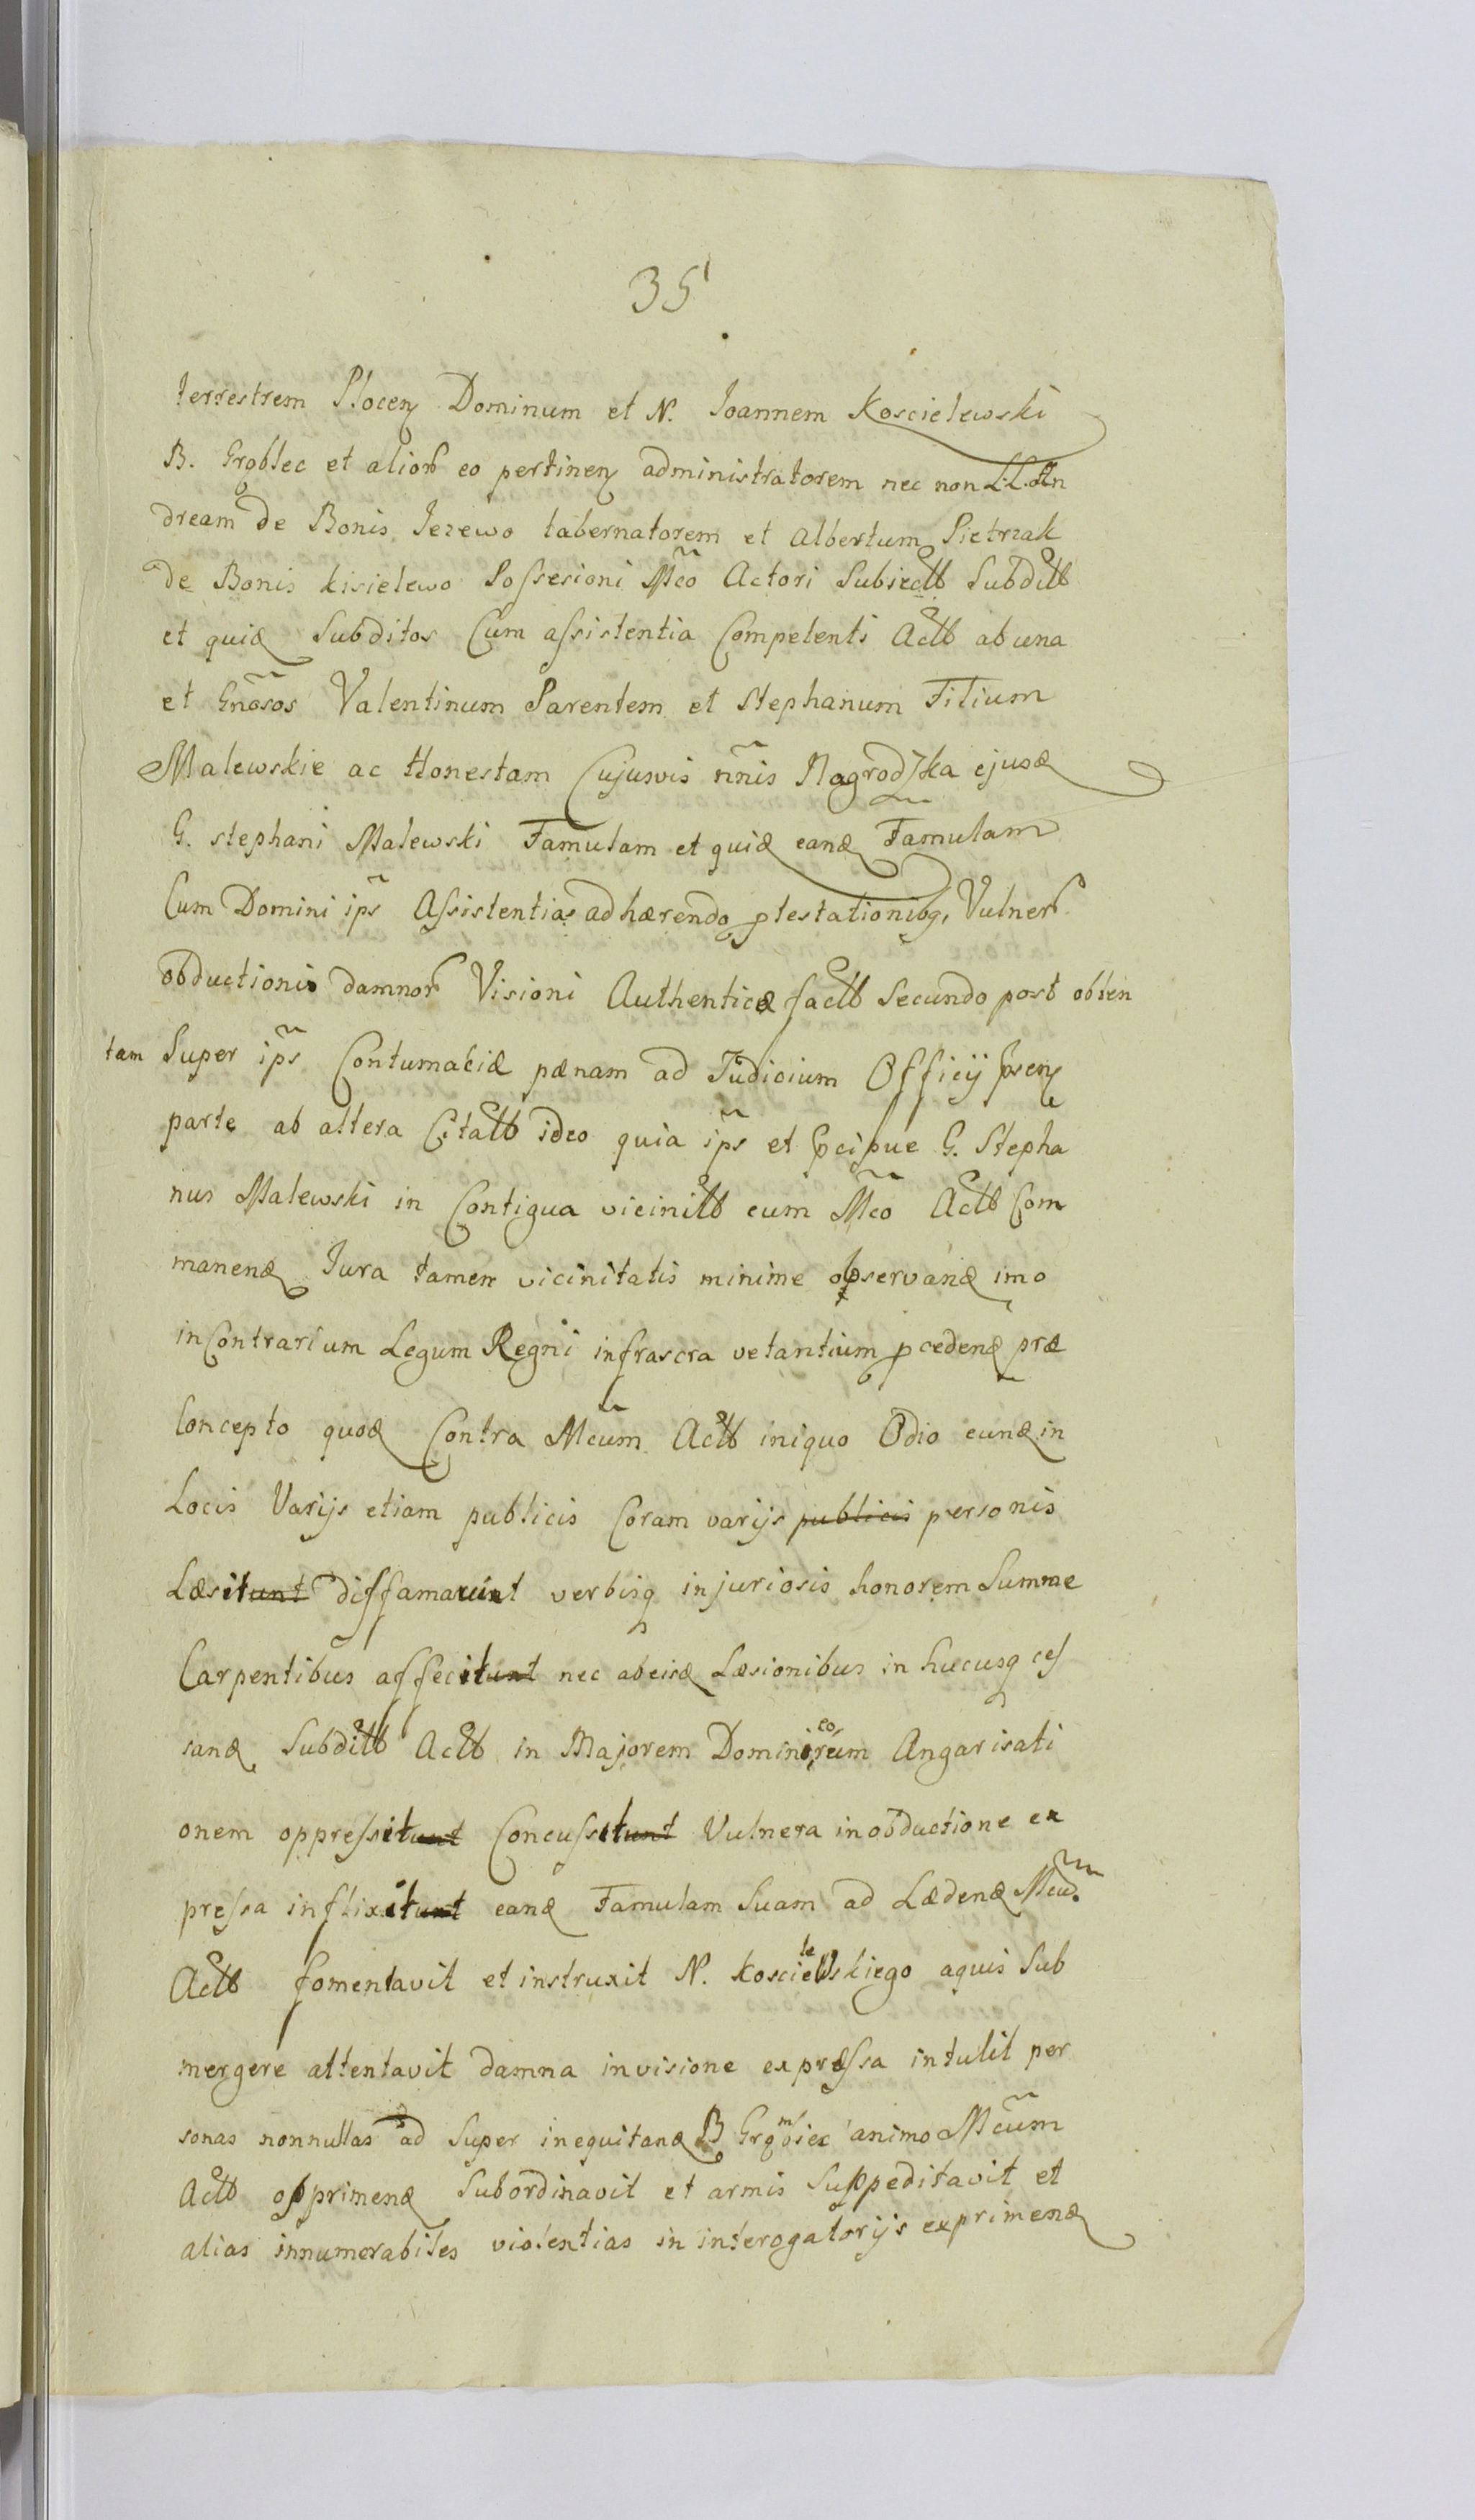 35
terrestrem Plocen Dominum et N. Ioannem Koscielewski
B. Grąblec et alior eo pertinen administratorem nec non L.L. An
dream de Bonis Jezewo tabernatorem et Albertum Pietrzak
de Bonis kisielewo Possesioni Mco Actori Subiectb Subditb
et quid Subditos Cum assistentia Competenti Actb ab una
et Gnosos Valentinum Parentem et Stephanum Filium
Malewskie ac Honestam Cujusvis nnis Nagrodzka ejusd
G. stephani Malewski Famulam et quid eand Famulam
Cum Domini ips Assistentia adhærendo ptestationibq, Vulner
obductionis damnor Visioni Authenticæ factb Secundo post obten
tam Super ips Contumaciæ pænam ad Judicium Officij psen
parte ab altera Citatb ideo quia ips et pcipue G. Stepha
nus Malewski in Contigua vicinitb cum Mco Actb Com
manend Jura tamen vicinitatis minime observand imo
in Contrarium Legum Regni infrascra vetantium pcedend præ
Concepto quod Contra Mcum Actb iniquo Odio eund in
Locis Varijs etiam publicis Coram varijs publicis personis
Læsitunt diffamarunt verbisq injuriosis honorem Summe
Carpentibus affecitunt nec ab eisd Læsionibus in hucusq ces
sand Subditb Actb in Majorem Dominicorum Angarisati
onem oppressitunt Concussitunt Vulnera in obductione ex
pressa inflixitunt eand Famulam Suam ad Lædend Mcum
Actb fomentavit et instruxit N. Koscielewskiego aquis Sub
mergere attentavit damna in visione expressa intulit per
sonas nonnullas ad Super inequitand B Grąmbiec animo Mcum
Actb opprimend Subordinavit et armis Suppeditavit et
alias innumerabiles violentias in interogatorijs exprimend